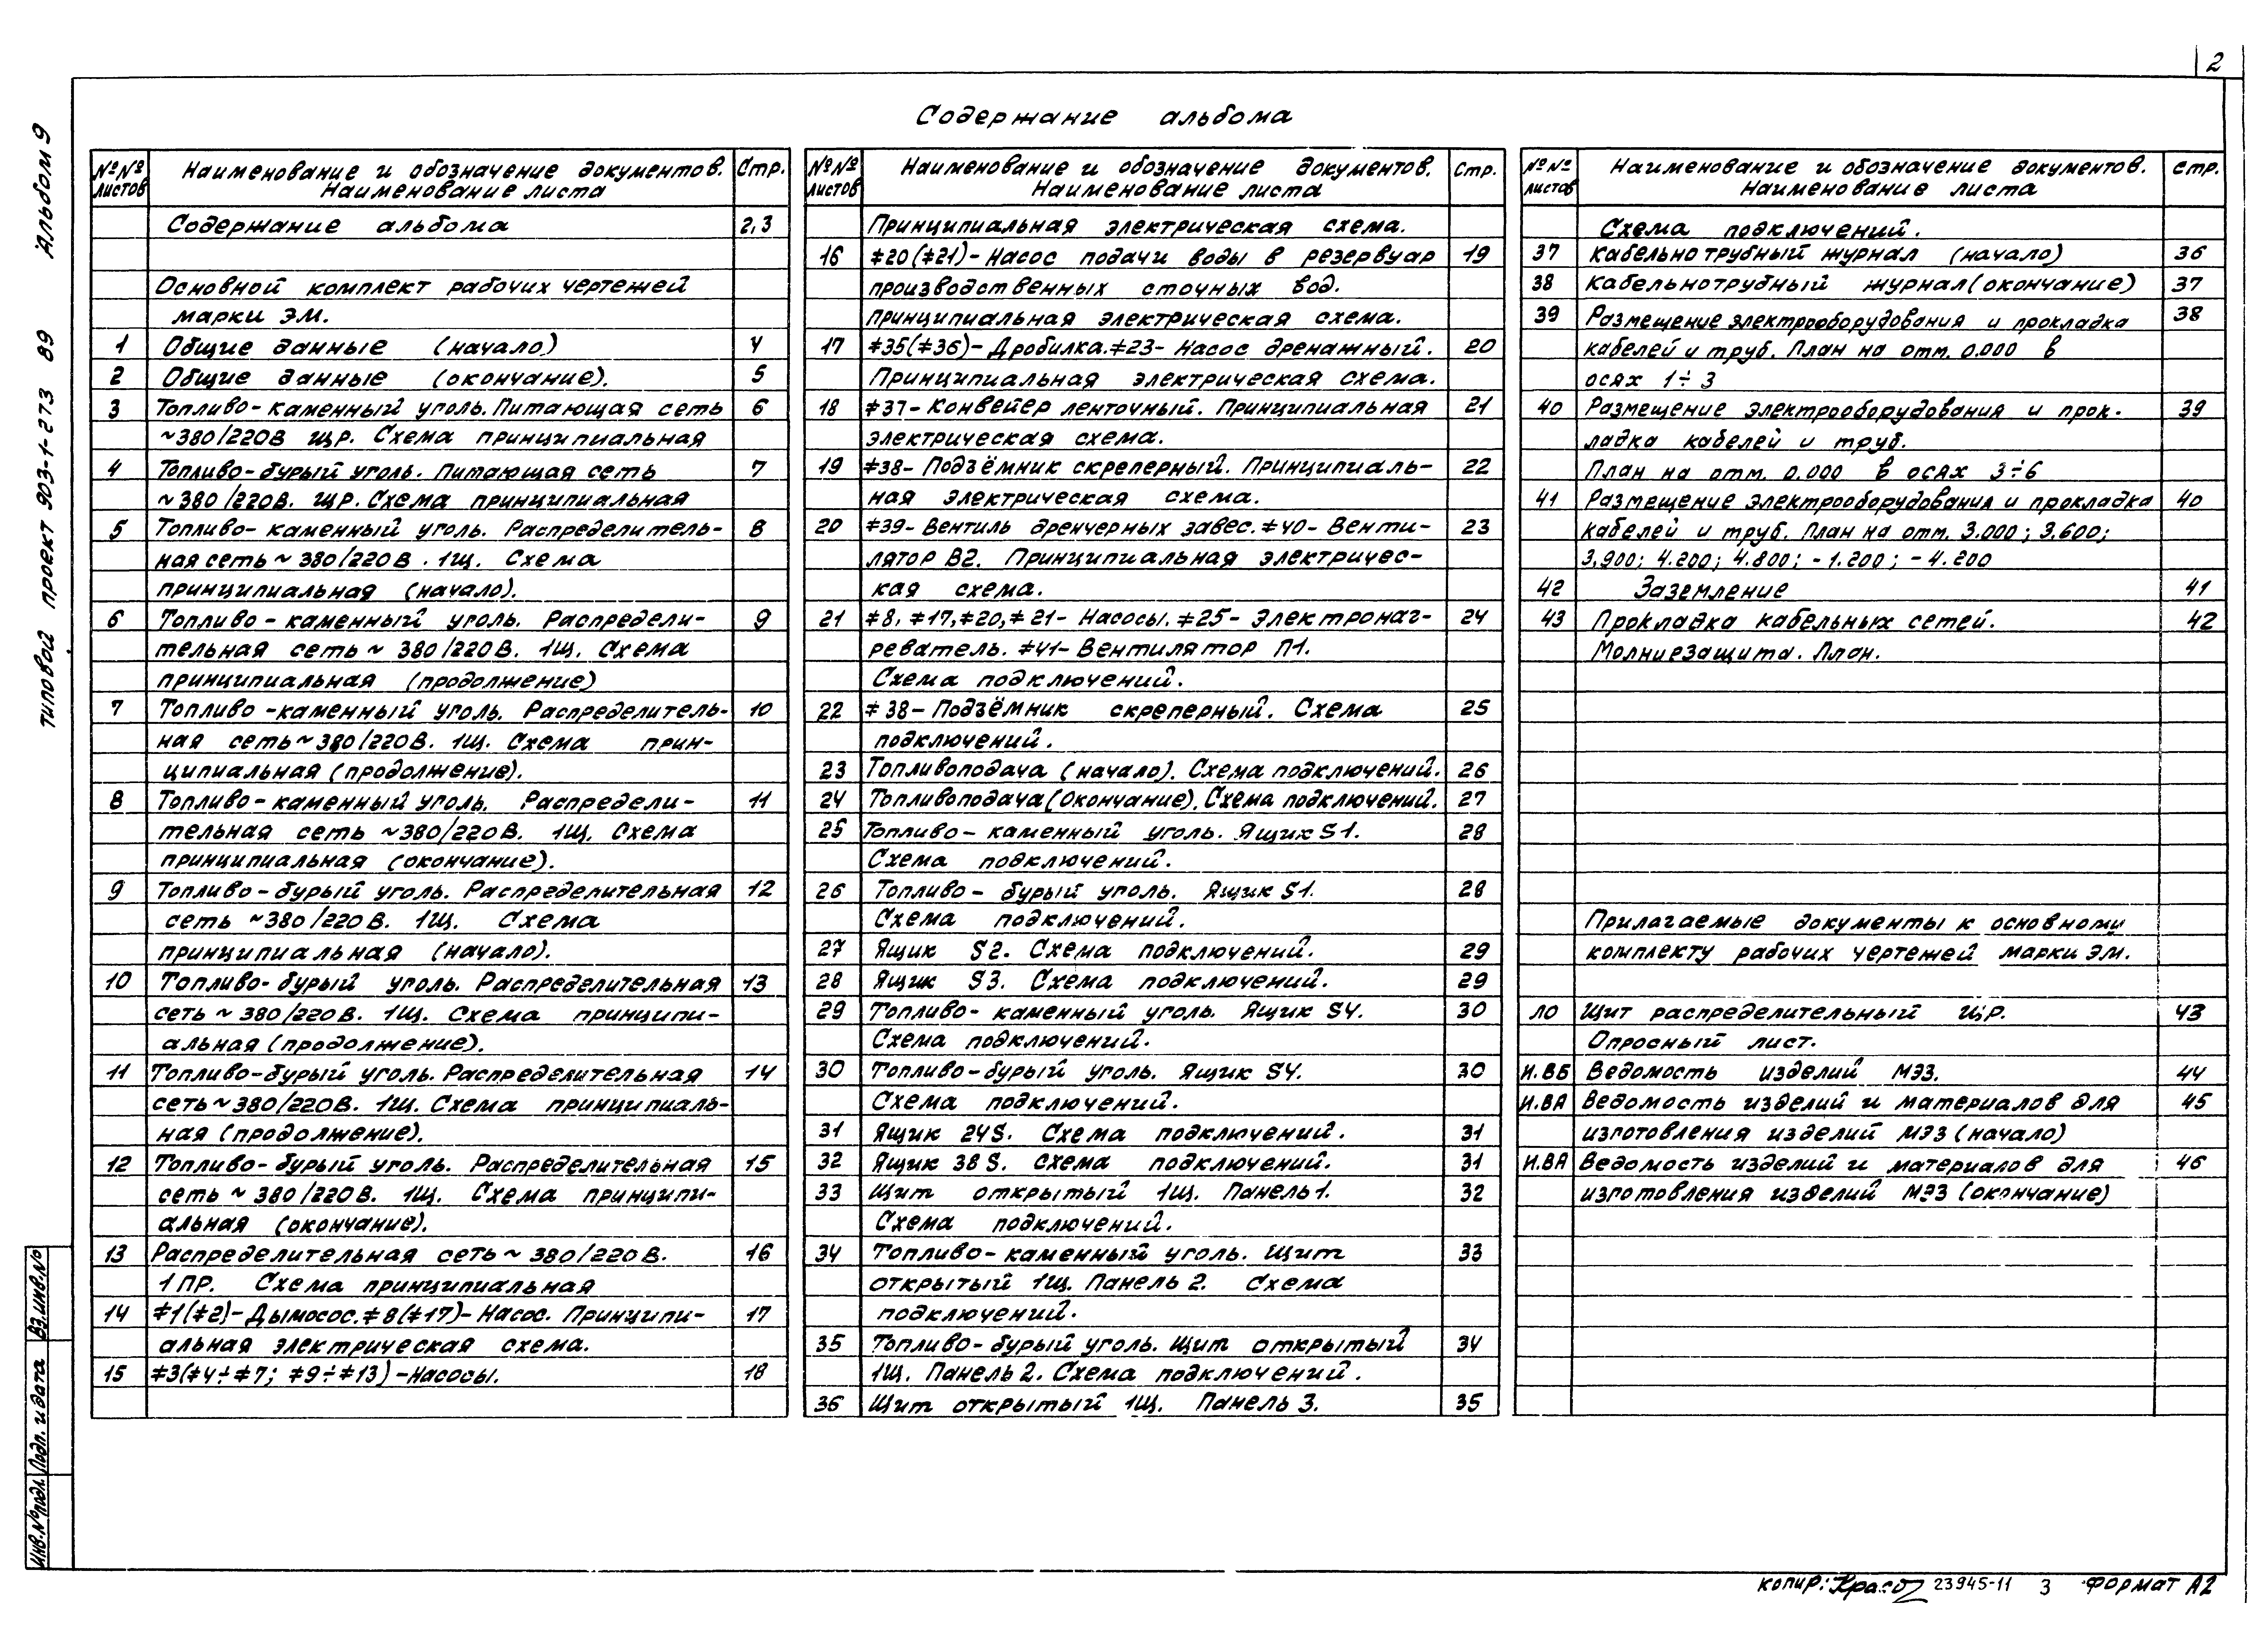 2
Содержание альбома
Альбом 9
типовой проект 903-1-273 89
№№ листов
Наименование и обозначение документов. Наименование листа
Стр.
Содержание альбома 2,3
Основной комплект рабочих чертежей
марки ЭМ.
1 Общие данные (начало) 4
2 Общие данные (окончание). 5
3 Топливо-каменный уголь. Питающая сеть 6
~380/220В ЩР. Схема принципиальная
4 Топливо-бурый уголь. Питающая сеть 7
~380/220В. ЩР. Схема принципиальная
5 Топливо-каменный уголь. Распределитель- 8
ная сеть ~380/220В. 1Щ. Схема
принципиальная (начало).
6 Топливо-каменный уголь. Распредели- 9
тельная сеть ~ 380/220В. 1Щ. Схема
принципиальная (продолжение)
7 Топливо-каменный уголь. Распределитель- 10
ная сеть ~380/220В. 1Щ. Схема прин-
ципиальная (продолжение).
8 Топливо-каменный уголь. Распредели- 11
тельная сеть ~380/220В. 1Щ. Схема
принципиальная (окончание).
9 Топливо-бурый уголь. Распределительная 12
сеть ~380/220В. 1Щ. Схема
принципиальная (начало).
10 Топливо-бурый уголь. Распределительная 13
сеть ~380/220В. 1Щ. Схема принципи-
альная (продолжение).
11 Топливо-бурый уголь. Распределительная 14
сеть ~380/220В. 1Щ. Схема принципиаль-
ная (продолжение).
12 Топливо-бурый уголь. Распределительная 15
сеть ~ 380/220В. 1Щ. Схема принципи-
альная (окончание).
13 Распределительная сеть ~ 380/220В. 16
1ПР. Схема принципиальная
14 ≠1(≠2)-Дымосос. ≠8(≠17)-Насос. Принципи- 17
альная электрическая схема.
15 ≠3(≠4÷≠7; ≠9÷≠13)-Насосы. 18
№№ листов
Наименование и обозначение документов. Наименование листа
Стр.
Принципиальная электрическая схема.
16 ≠20(≠21)-Насос подачи воды в резервуар 19
производственных сточных вод.
Принципиальная электрическая схема.
17 ≠35(≠36)-Дробилка. ≠23-Насос дренажный. 20
Принципиальная электрическая схема.
18 ≠37-Конвейер ленточный. Принципиальная 21
электрическая схема.
19 ≠38-Подъёмник скреперный. Принципиаль- 22
ная электрическая схема.
20 ≠39-Вентиль дренчерных завес. ≠40-Венти- 23
лятор В2. Принципиальная электричес-
кая схема.
21 ≠8, ≠17, ≠20, ≠21- Насосы. ≠25- Электронаг- 24
реватель. ≠41-Вентилятор П1.
Схема подключений.
22 ≠38-Подъёмник скреперный. Схема 25
подключений.
23 Топливоподача (начало). Схема подключений. 26
24 Топливоподача (окончание). Схема подключений. 27
25 Топливо-каменный уголь. Ящик S1. 28
Схема подключений.
26 Топливо-бурый уголь. Ящик S1. 28
Схема подключений.
27 Ящик S2. Схема подключений. 29
28 Ящик S3. Схема подключений. 29
29 Топливо-каменный уголь. Ящик S4. 30
Схема подключений.
30 Топливо-бурый уголь. Ящик S4. 30
Схема подключений.
31 Ящик 24S. Схема подключений. 31
32 Ящик 38S. Схема подключений. 31
33 Щит открытый 1Щ. Панель 1. 32
Схема подключений.
34 Топливо-каменный уголь. Щит 33
открытый 1Щ. Панель 2. Схема
подключений.
35 Топливо-бурый уголь. Щит открытый 34
1Щ. Панель 2. Схема подключений.
36 Щит открытый 1Щ. Панель 3. 35
№№ листов
Наименование и обозначение документов. Наименование листа
Стр.
Схема подключений.
37 Кабельнотрубный журнал (начало) 36
38 Кабельнотрубный журнал (окончание) 37
39 Размещение электрооборудования и прокладка 38
кабелей и труб. План на отм. 0.000 в
осях 1÷3
40 Размещение электрооборудования и прок- 39
ладка кабелей и труб.
План на отм. 0.000 в осях 3÷6
41 Размещение электрооборудования и прокладка 40
кабелей и труб. План на отм. 3.000; 3.600;
3,900; 4.200; 4.800; -1.200; -4.200
42 Заземление 41
43 Прокладка кабельных сетей. 42
Молниезащита. План.
Прилагаемые документы к основному
комплекту рабочих чертежей марки ЭМ.
ЛО Щит распределительный ЩР. 43
Опросный лист.
И.ВБ Ведомость изделий МЭЗ. 44
И.ВА Ведомость изделий и материалов для 45
изготовления изделий МЭЗ (начало)
И.ВА Ведомость изделий и материалов для 46
изготовления изделий МЭЗ (окончание)
Инв.№подл. Подп. и дата Вз.инв.№
копир: 23945-11 3 Формат А2